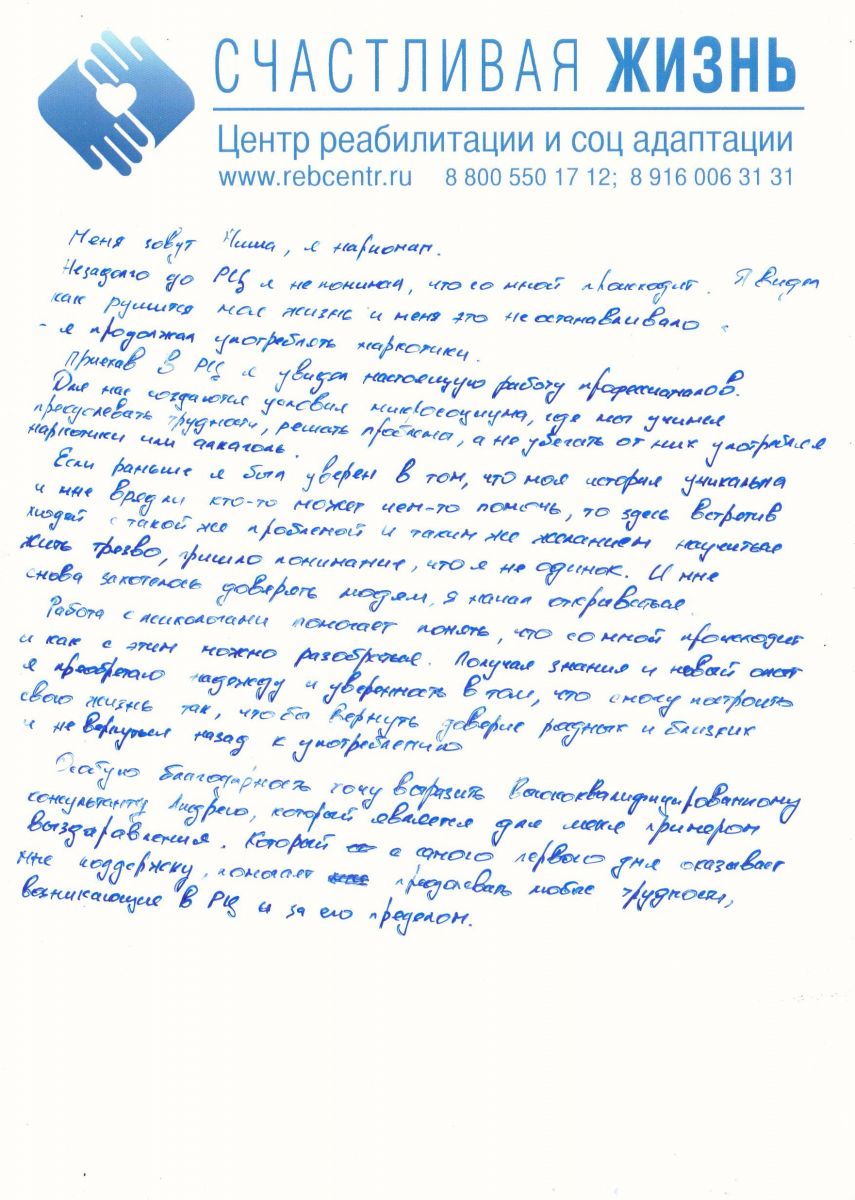 СЧАСТЛИВАЯ ЖИЗНЬ
Центр реабилитации и соц адаптации
www.rebcentr.ru 8 800 550 17 12; 8 916 006 31 31
Меня зовут Миша, я наркоман.
Незадолго до РЦ я не понимал, что со мной происходит. Я видел
как рушится моя жизнь и меня это не останавливало
- я продолжал употреблять наркотики.
Приехав в РЦ я увидел настоящую работу профессионалов.
Для нас создаются условия микросоциума, где мы учимся
преодолевать трудности, решать проблемы, а не убегать от них употребляя
наркотики или алкаголь.
Если раньше я был уверен в том, что моя история уникальна
и мне врядли кто-то может чем-то помочь, то здесь встретив
людей с такой же проблемой и таким же желанием научиться
жить трезво, пришло понимание, что я не одинок. И мне
снова захотелось доверять людям, я начал открываться.
Работа с психологами помогает понять, что со мной происходит
и как с этим можно разобраться. Получая знания и новый опыт
я приобретаю надежду и уверенность в том, что смогу построить
свою жизнь так, что бы вернуть доверие родных и близких
и не вернуться назад к употреблению
Особую благодарность хочу выразить высококвалифицированному
консультанту Андрею, который является для меня примером
выздоравления. Который с самого первого дня оказывает
мне поддержку, помогает преодолевать любые трудности,
возникающие в РЦ и за его пределом.